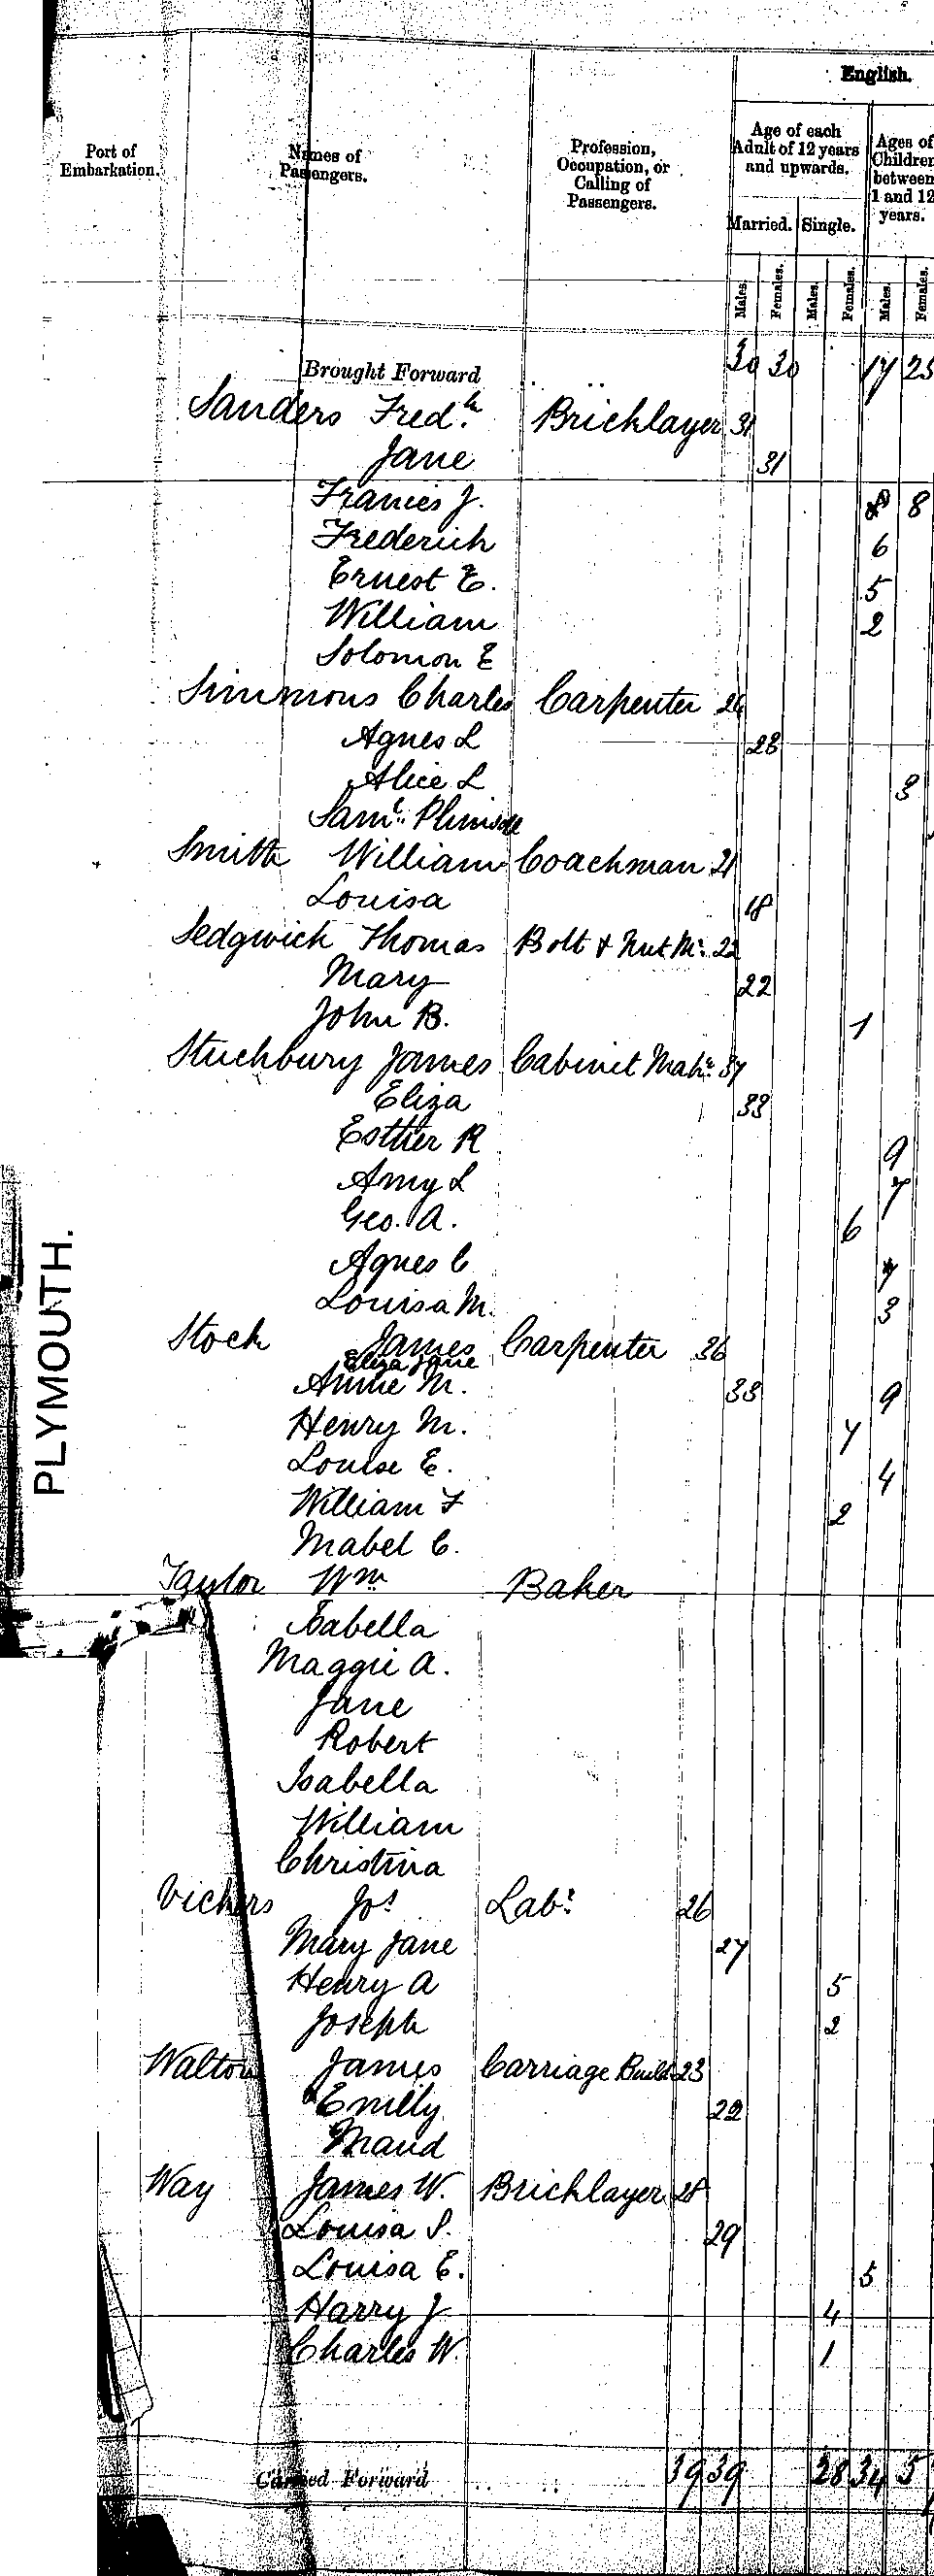 English.
Port of Embarkation.
Names of Passengers.
Profession, Occupation, or Calling of Passengers.
Age of each Adult of 12 years and upwards.
Ages of Children between 1 and 12 years.
Married. Single.
Males. Females. Males. Females. Males. Females.
Brought Forward .. .. 30 30 17 25
Sanders Fredk. Bricklayer 31
Jane 31
Frances J. 8
Frederick 6
Ernest E. 5
William 2
Solomon E
Simmons Charles Carpenter 26
Agnes L 28
Alice L 3
Saml. Plimsoll
Smith William Coachman 21
Louisa 18
Sedgwick Thomas Bolt & Nut Mr. 22
Mary 22
John B. 1
Stuchbury James Cabinet Makr. 37
Eliza 33
Esther R 9
Amy L 7
Geo. A. 6
Agnes C
Louisa M. 3
Stock James Carpenter 36
Eliza Jane
Annie M. 33 9
Henry M. 7
Louise E. 4
William F 2
Mabel C.
PLYMOUTH.
Taylor Wm Baker
Isabella
Maggie A.
Jane
Robert
Isabella
William
Christina
Vickers Jos. Labr. 26
Mary Jane 27
Henry A 5
Joseph 2
Walton James Carriage Build 23
Emily 22
Maud
Way James W. Bricklayer 28
Louisa S. 29
Louisa E. 5
Harry J 4
Charles W. 1
Carried Forward .. .. 39 39 28 34 5